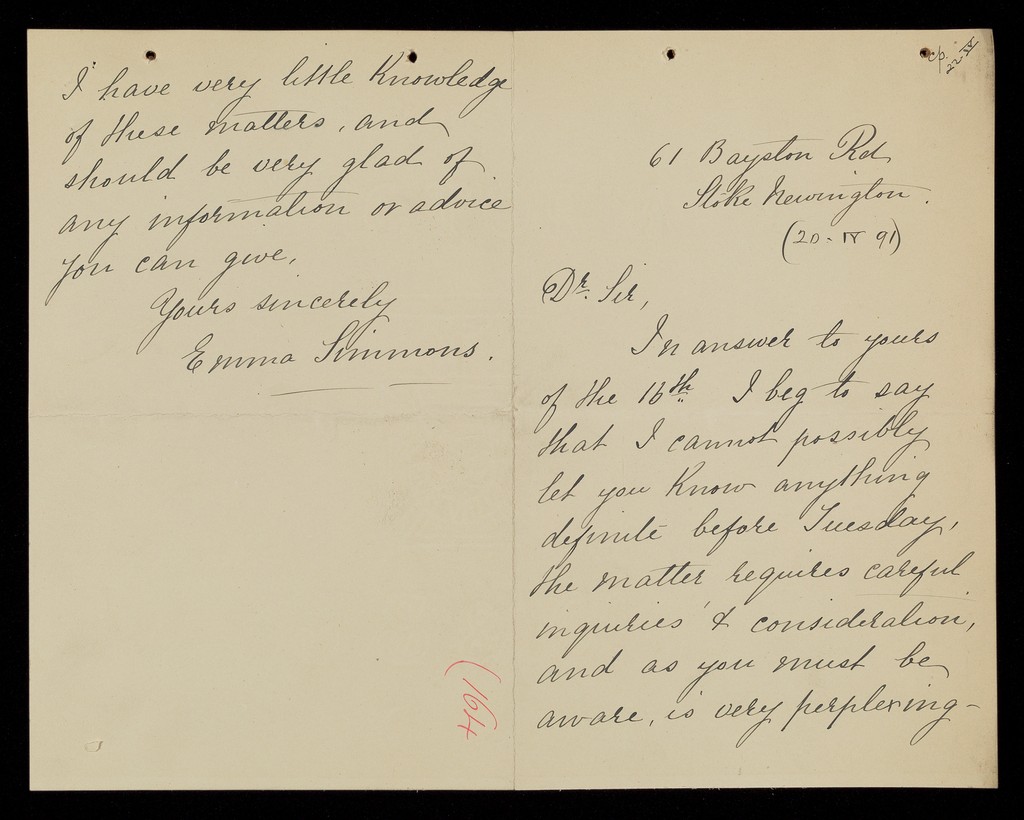 cp.
22 IV
61 Bayston Rd
Stoke Newington.
(20-IV 91)
Dr. Sir,
In answer to yours
of the 16th I beg to say
that I cannot possibly
let you know anything
definite before Tuesday,
the matter requires careful
inquiries & consideration,
and as you must be
aware, is very perplexing-
I have very little knowledge
of these matters, and
should be very glad of
any information or advice
you can give,
Yours sincerely
Emma Simmons.
(164